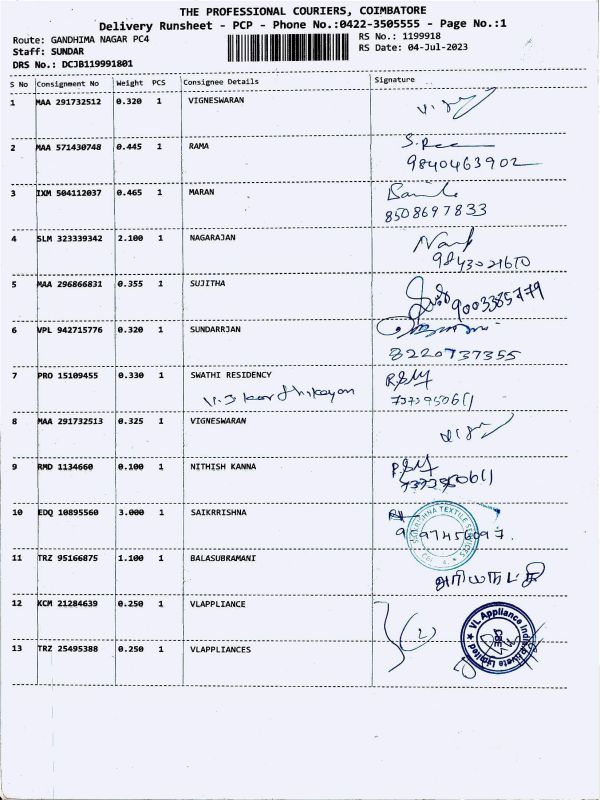 THE PROFESSIONAL COURIERS, COIMBATORE
Delivery Runsheet - PCP - Phone No.:0422-3505555 - Page No.:1
Route: GANDHIMA NAGAR PC4 RS No.: 1199918
Staff: SUNDAR RS Date: 04-Jul-2023
DRS No.: DCJB119991801
S No Consignment No Weight PCS Consignee Details Signature
1 MAA 291732512 0.320 1 VIGNESWARAN
2 MAA 571430748 0.445 1 RAMA
9840463902
3 IXM 504112037 0.465 1 MARAN
8508697833
4 SLM 323339342 2.100 1 NAGARAJAN
9843021610
5 MAA 296866831 0.355 1 SUJITHA
9003385779
6 VPL 942715776 0.320 1 SUNDARRJAN
8220737355
7 PRO 15109455 0.330 1 SWATHI RESIDENCY
8 MAA 291732513 0.325 1 VIGNESWARAN
9 RMD 1134660 0.100 1 NITHISH KANNA
10 EDQ 10895560 3.000 1 SAIKRRISHNA
11 TRZ 95166875 1.100 1 BALASUBRAMANI
12 KCM 21284639 0.250 1 VLAPPLIANCE
VL Appliance India Private Limited
CBE
13 TRZ 25495388 0.250 1 VLAPPLIANCES